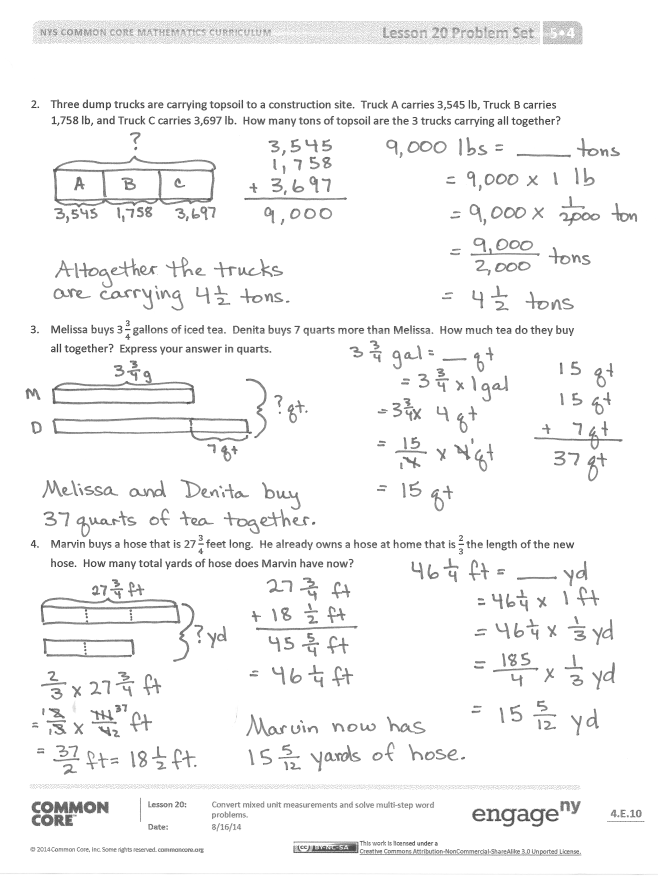 NYS COMMON CORE MATHEMATICS CURRICULUM
Lesson 20 Problem Set 5•4
2. Three dump trucks are carrying topsoil to a construction site. Truck A carries 3,545 lb, Truck B carries
1,758 lb, and Truck C carries 3,697 lb. How many tons of topsoil are the 3 trucks carrying all together?
?
A B C
3,545 1,758 3,697
3,545
1,758
+ 3,697
9,000
9,000 lbs = ____ tons
= 9,000 x 1 lb
= 9,000 x 1/2,000 ton
= 9,000/2,000 tons
= 4 1/2 tons
Altogether the trucks
are carrying 4 1/2 tons.
3. Melissa buys 3 3/4 gallons of iced tea. Denita buys 7 quarts more than Melissa. How much tea do they buy
all together? Express your answer in quarts.
3 3/4 g
M
D
? qt.
7 qt
3 3/4 gal = __ qt
= 3 3/4 x 1 gal
= 3 3/4 x 4 qt
= 15/4 x 4 1 qt
= 15 qt
15 qt
15 qt
+ 7 qt
37 qt
Melissa and Denita buy
37 quarts of tea together.
4. Marvin buys a hose that is 27 3/4 feet long. He already owns a hose at home that is 2/3 the length of the new
hose. How many total yards of hose does Marvin have now?
27 3/4 ft
? yd
2/3 x 27 3/4 ft
37
= 37/2 ft = 18 1/2 ft.
27 3/4 ft
+ 18 1/2 ft
45 5/4 ft
= 46 1/4 ft
46 1/4 ft = ___ yd
= 46 1/4 x 1 ft
= 46 1/4 x 1/3 yd
= 185/4 x 1/3 yd
= 15 5/12 yd
Marvin now has
15 5/12 yards of hose.
COMMON CORE™
Lesson 20: Convert mixed unit measurements and solve multi-step word
problems.
Date: 8/16/14
engage ny
4.E.10
© 2014 Common Core, Inc. Some rights reserved. commoncore.org
(cc) BY-NC-SA
This work is licensed under a
Creative Commons Attribution-NonCommercial-ShareAlike 3.0 Unported License.